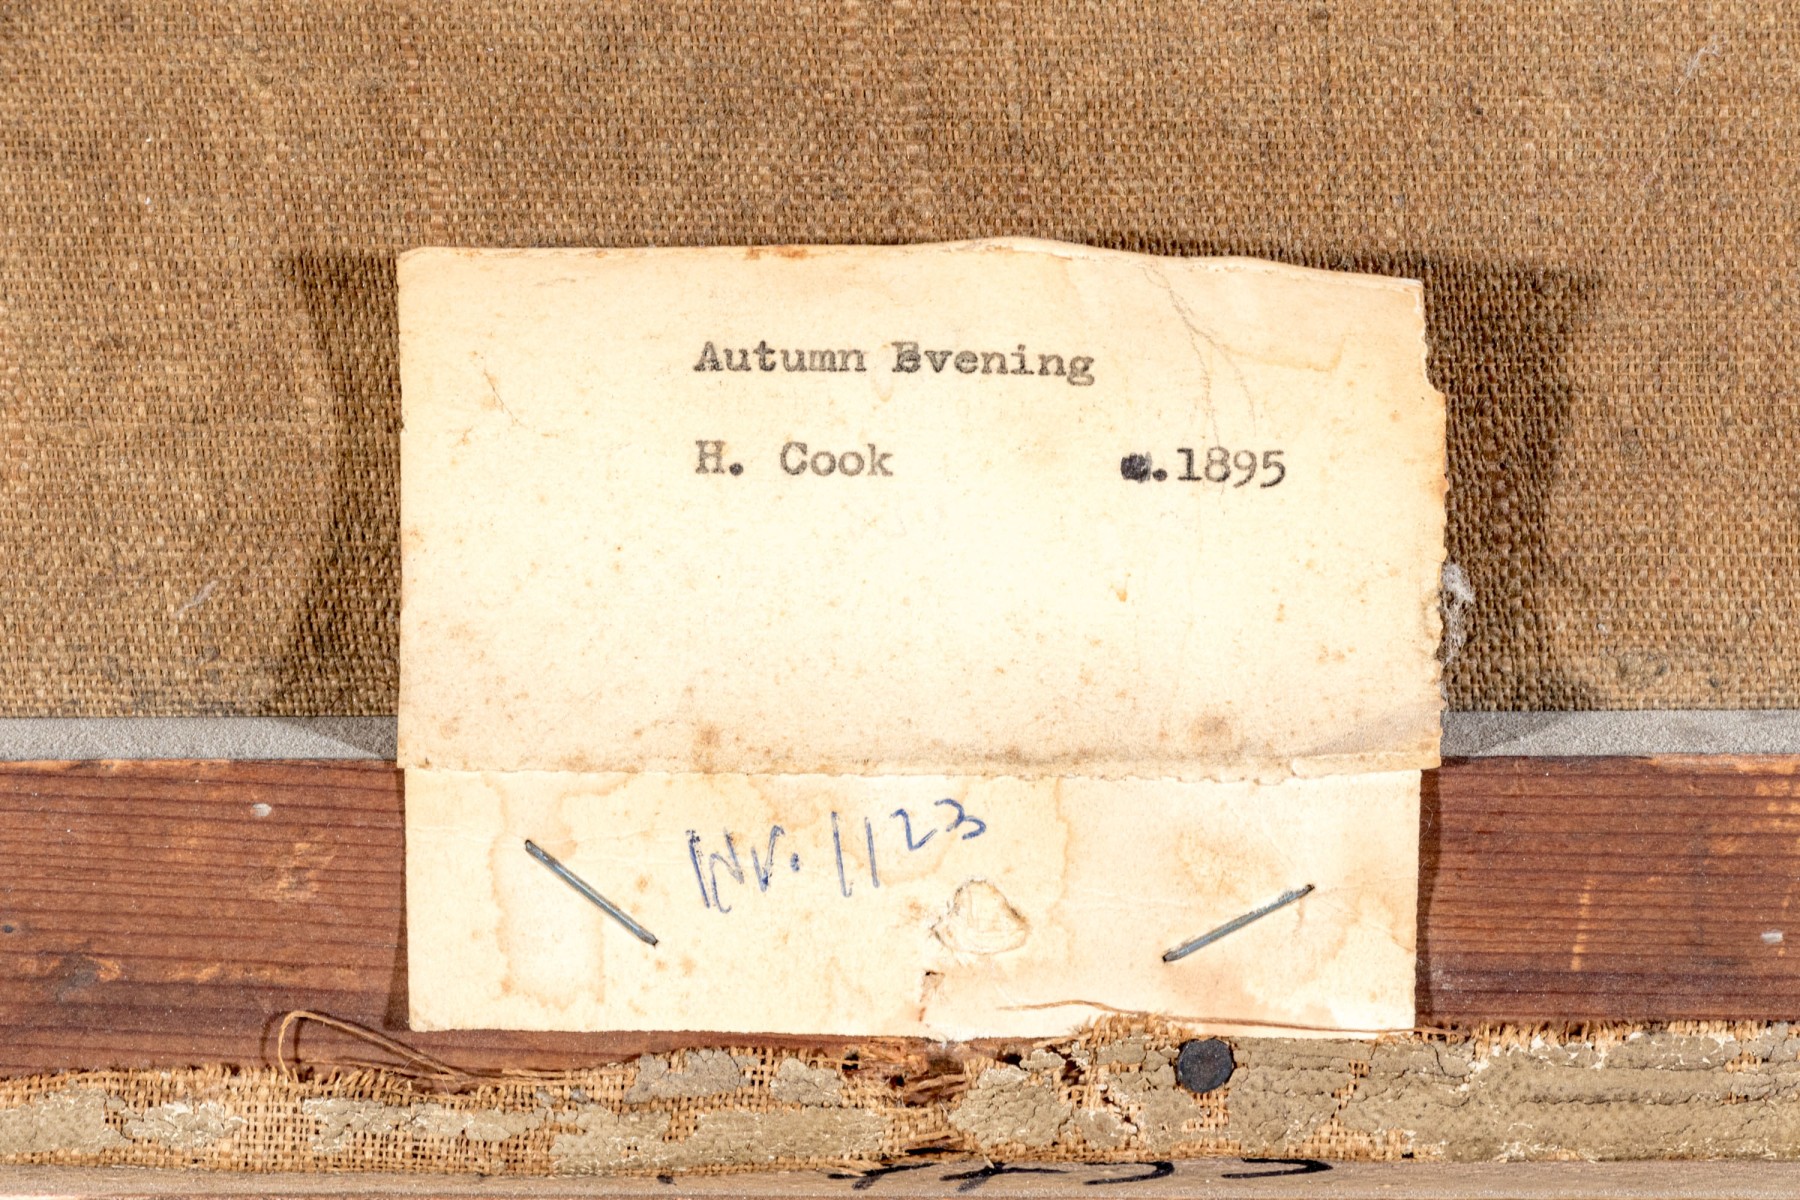 Autumn Evening
H. Cook c.1895
Nr. 1123